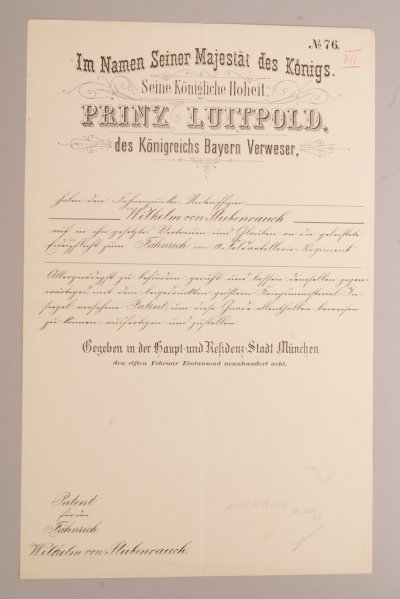 № 76.
VII
Im Namen Seiner Majestät des Königs.
Seine Königliche Hoheit,
PRINZ LUITPOLD,
des Königreichs Bayern Verweser,
haben den Fahnenjunker Unteroffizier
Wilhelm von Stubenrauch
auf in ihn gesetztes Vertrauen und Glauben an die geleistete
zum Fähnrich im 11. Feldartillerie Regiment
Allergnädigst zu befördern geruht und lassen demselben gegen-
wärtiges, mit dem beigedruckten größeren Kriegsministerial-In-
siegel versehene Patent um diese Gnade allenthalben beweisen
zu können, ausfertigen und zustellen.
Gegeben in der Haupt- und Residenz-Stadt München
den elften Februar Eintausend neunhundert acht.
Patent
für den
Fähnrich
Wilhelm von Stubenrauch.